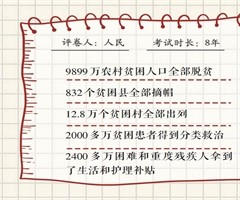 评卷人：人民 考试时长：8年
9899万农村贫困人口全部脱贫
832个贫困县全部摘帽
12.8万个贫困村全部出列
2000多万贫困患者得到分类救治
2400多万困难和重度残疾人拿到
了生活和护理补贴